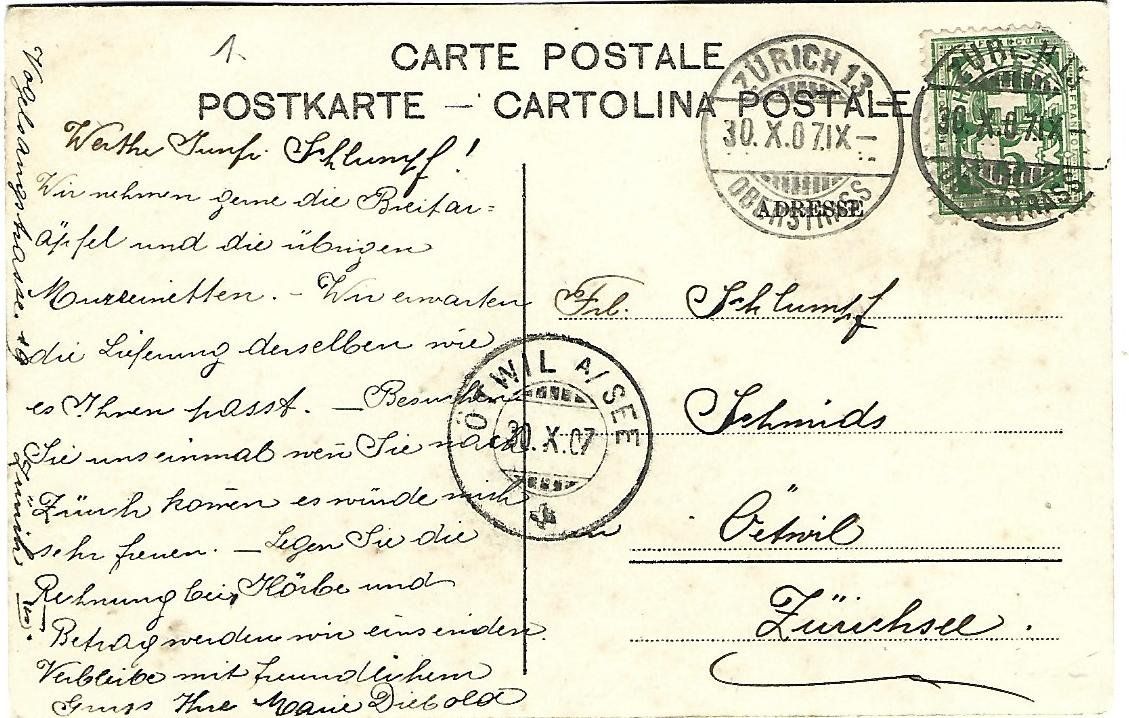 1.
CARTE POSTALE
POSTKARTE — CARTOLINA POSTALE
ZÜRICH 13
30. X. 07. IX —
OBERSTRASS
ZÜRICH 13
30. X. 07. IX —
OBERSTRASS
ADRESSE
Werthe Junfr. Schlumpf!
Wir nehmen gerne die Breitar=
äpfel und die übrigen
. — Wir erwarten
die Lieferung derselben wie
es Ihnen passt. — Besuchen
Sie uns einmal wen̄ Sie nach
Zürich kom̄en es würde mich
sehr freuen. — Legen Sie die
Rechnung bei, Körbe und
Betrag werden wir einsenden.
Verbleibe mit freundlichem
Gruss Ihre Marie Diebold
Vogelsangstrasse
Zürich IV.
ÖTWIL A/SEE
30. X. 07
Frl. Schlumpf
Schmids
in Oetwil
Zürichsee.